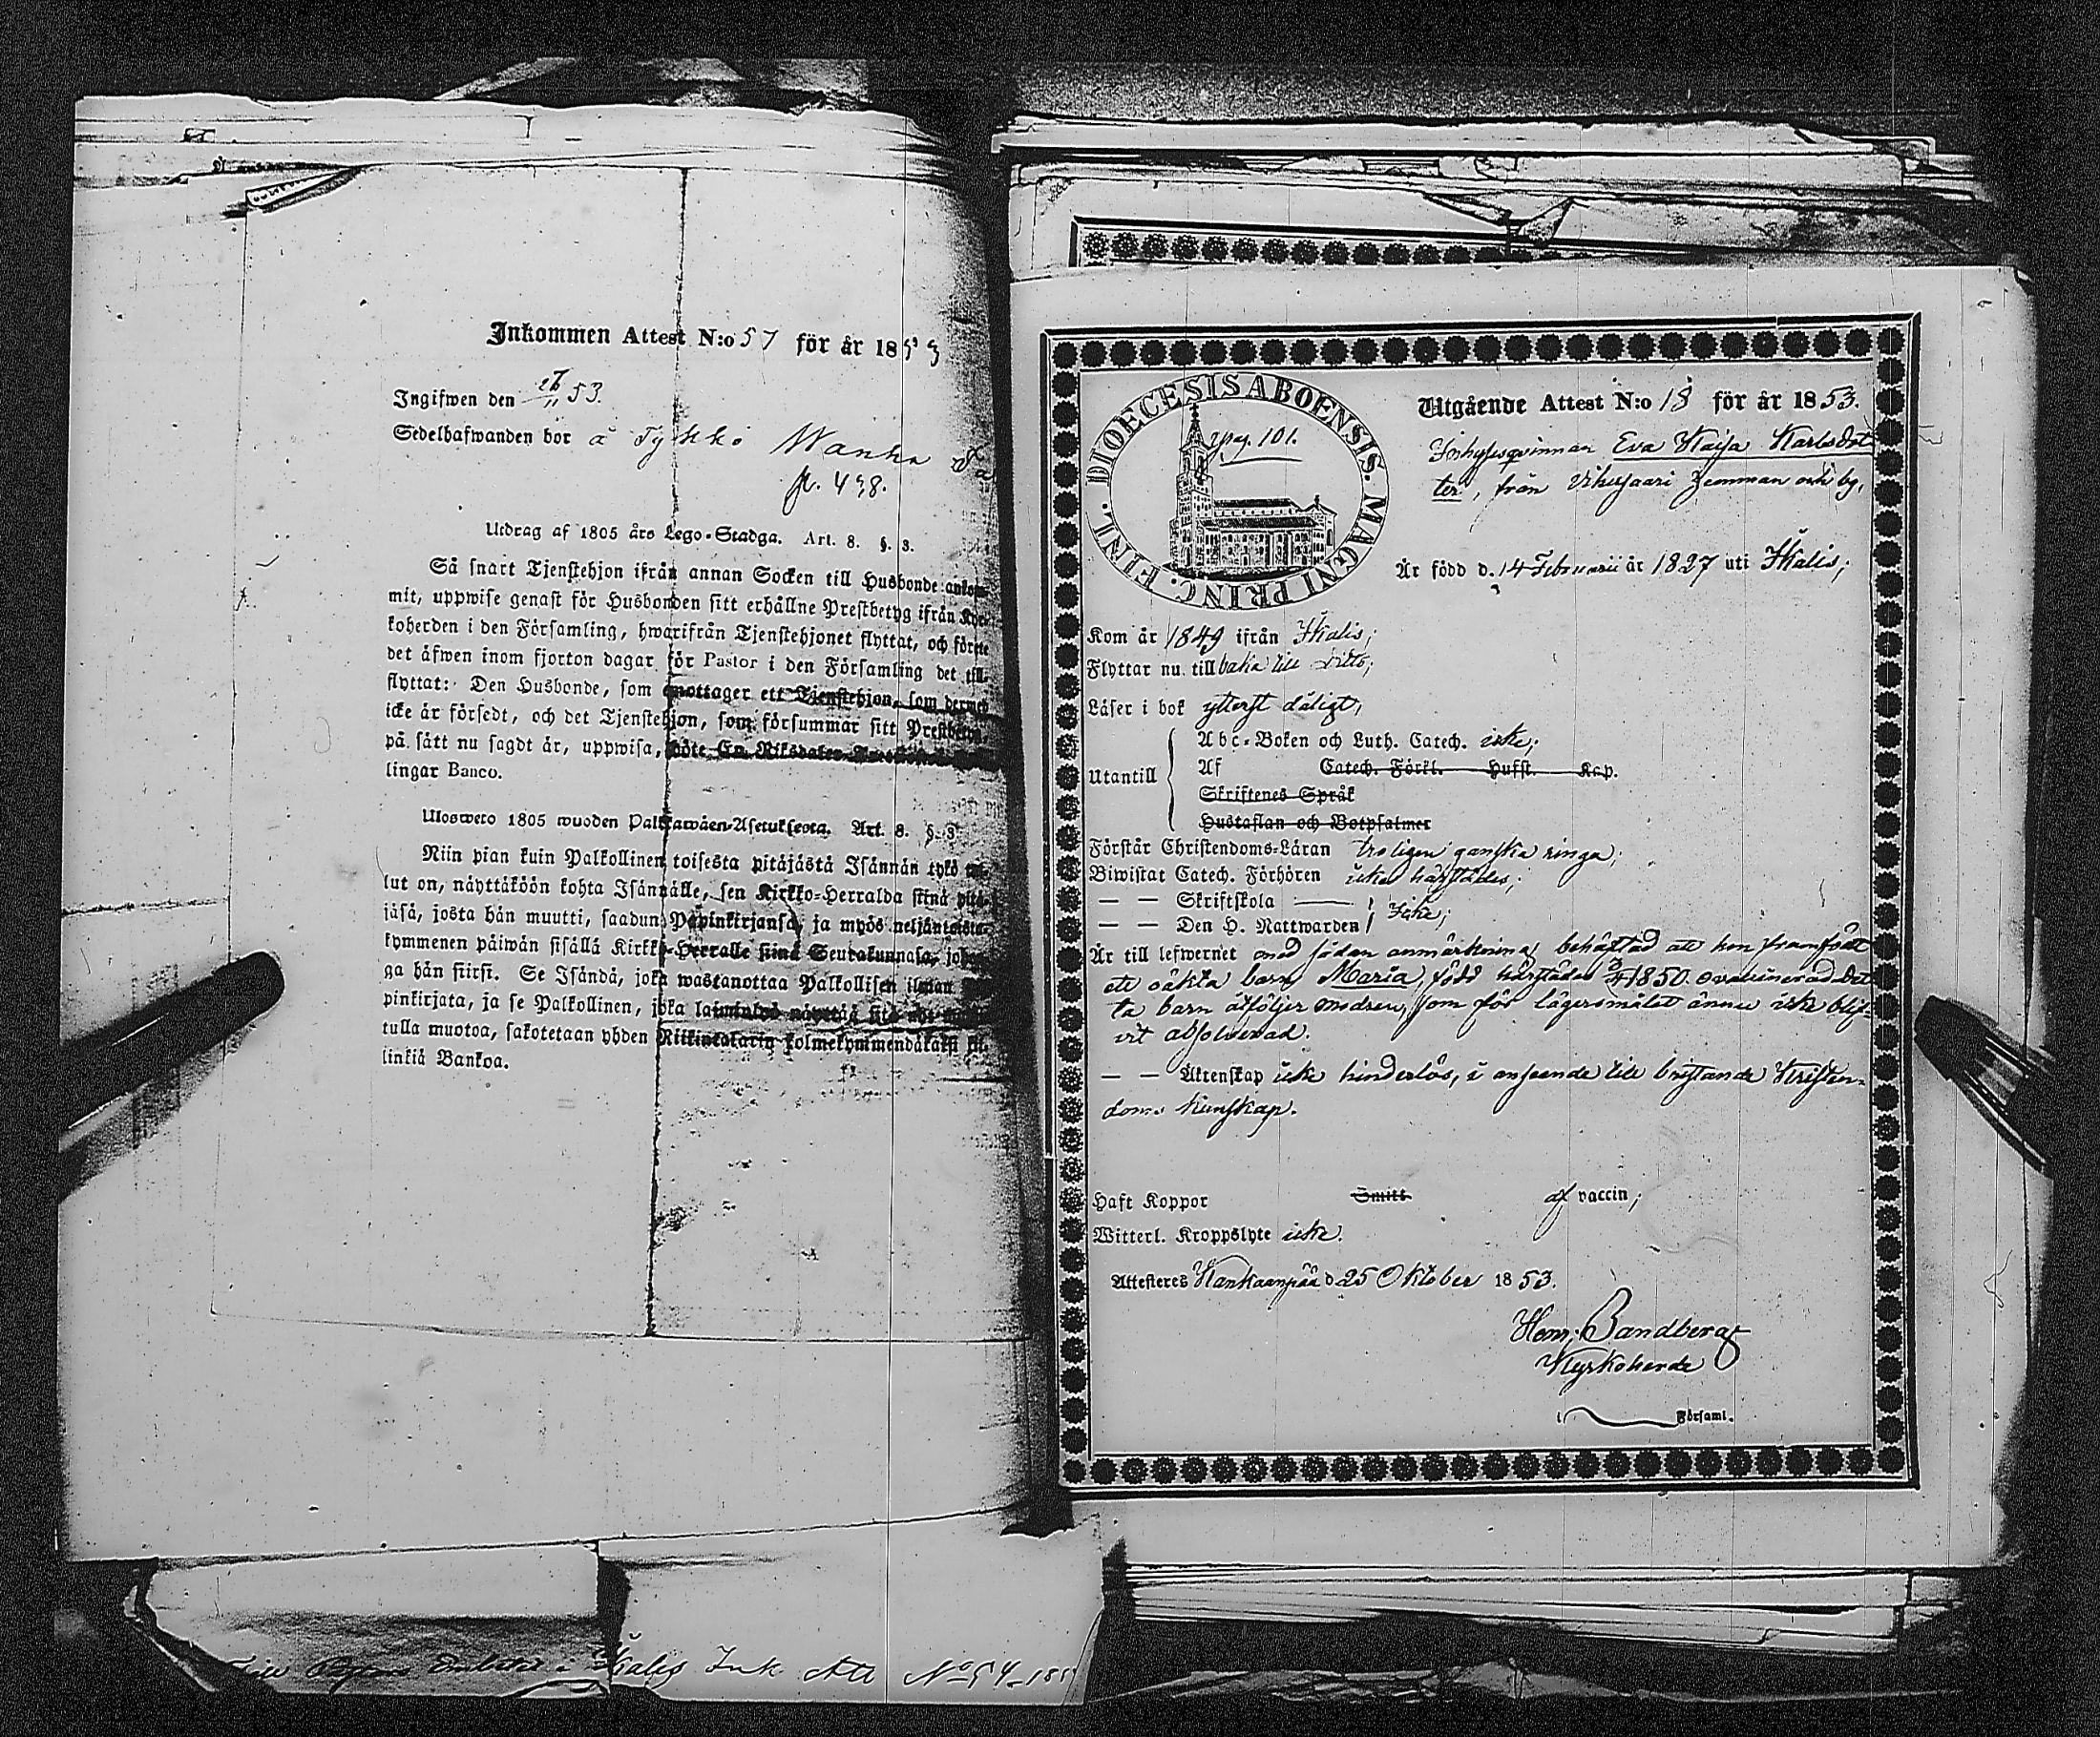 Inkommen Attest N:o 57 för år 1853
Ingifwen den 53.
Sedelhafwanden bor å Tykkö Wanha
p. 438.
Utdrag af 1805 års Lego-Stadga. Art. 8. §. 3.
Så snart Tjenstehjon ifrån annan Socken till Husbonde ankom-
mit, uppwise genast för Husbonden sitt erhållne Prestbetyg ifrån Kyr-
koherden i den Församling, hwarifrån Tjenstehjonet flyttat, och förete
det äfwen inom fjorton dagar för Pastor i den Församling det till-
flyttat: Den Husbonde, som emottager ett Tjenstehjon, som dermed
icke är försedt, och det Tjenstehjon, som försummar sitt Prestbetyg,
på sätt nu sagdt är, uppwisa, böte En Riksdaler
lingar Banco.
Ulosweto 1805 wuoden Palkkawäen-Asetuksesta. Art. 8. §. 3.
Niin pian kuin Palkollinen toisesta pitäjästä Isännän tykö tul-
lut on, näyttäköön kohta Isännälle, sen Kirkko-Herralda siinä pitä-
jäsä, josta hän muutti, saadun Papinkirjansa, ja myös neljäntoista-
kymmenen päiwän sisällä Kirkko-Herralle siinä Seurakunnasa, johon-
ga hän siirsi. Se Isändä, joka wastanottaa Palkollisen ilman
pinkirjata, ja se Palkollinen, joka laiminlyö näyttää sitä
tulla muotoa, sakotetaan yhden Riikintalarin kolmekymmendäkaksi kil-
linkiä Bankoa.
Till Pastors Embetet i Ikalis Ink. Att No 54-185
DIOECESIS ABOENSIS. MAGNI PRINC. FINL.
pag. 101.
Utgående Attest N:o 18 för år 1853.
Inhysesqvinnan Eva Kaisa Karlsdot-
ter, från Vihusaari Hemman och by,
Är född d. 14 Februarii år 1827 uti Ikalis;
Kom år 1849 ifrån Ikalis;
Flyttar nu till baka till Ditto;
Läser i bok ytterst dåligt,
Utantill
Abc-Boken och Luth. Catech. icke;
Af Catech. Förkl. Husst. Kap.
Skriftenes Språk
Hustaflan och Botpsalmer
Förstår Christendoms-Läran troligen ganska ringa;
Biwistat Catech. Förhören icke härstädes;
— — Skriftskola —
— — Den H. Nattwarden Icke;
Är till lefwernet med sådan anmärkning behäftad att hon framfödt
ett oäkta barn Maria, född härstädes 1850. ovaccinerad. Det-
ta barn åtföljer modren, som för lägersmålet ännu icke blif-
vit absolverad.
— — Äktenskap icke hinderlös, i anseende till bristande Kristen-
doms kunskap.
Haft Koppor Smitt af vaccin;
Witterl. Kroppslyte icke.
Attesteres Kankaanpää d 25 Oktober 1853.
Henr. Sandberg
Kyrkoherde
i Församl.